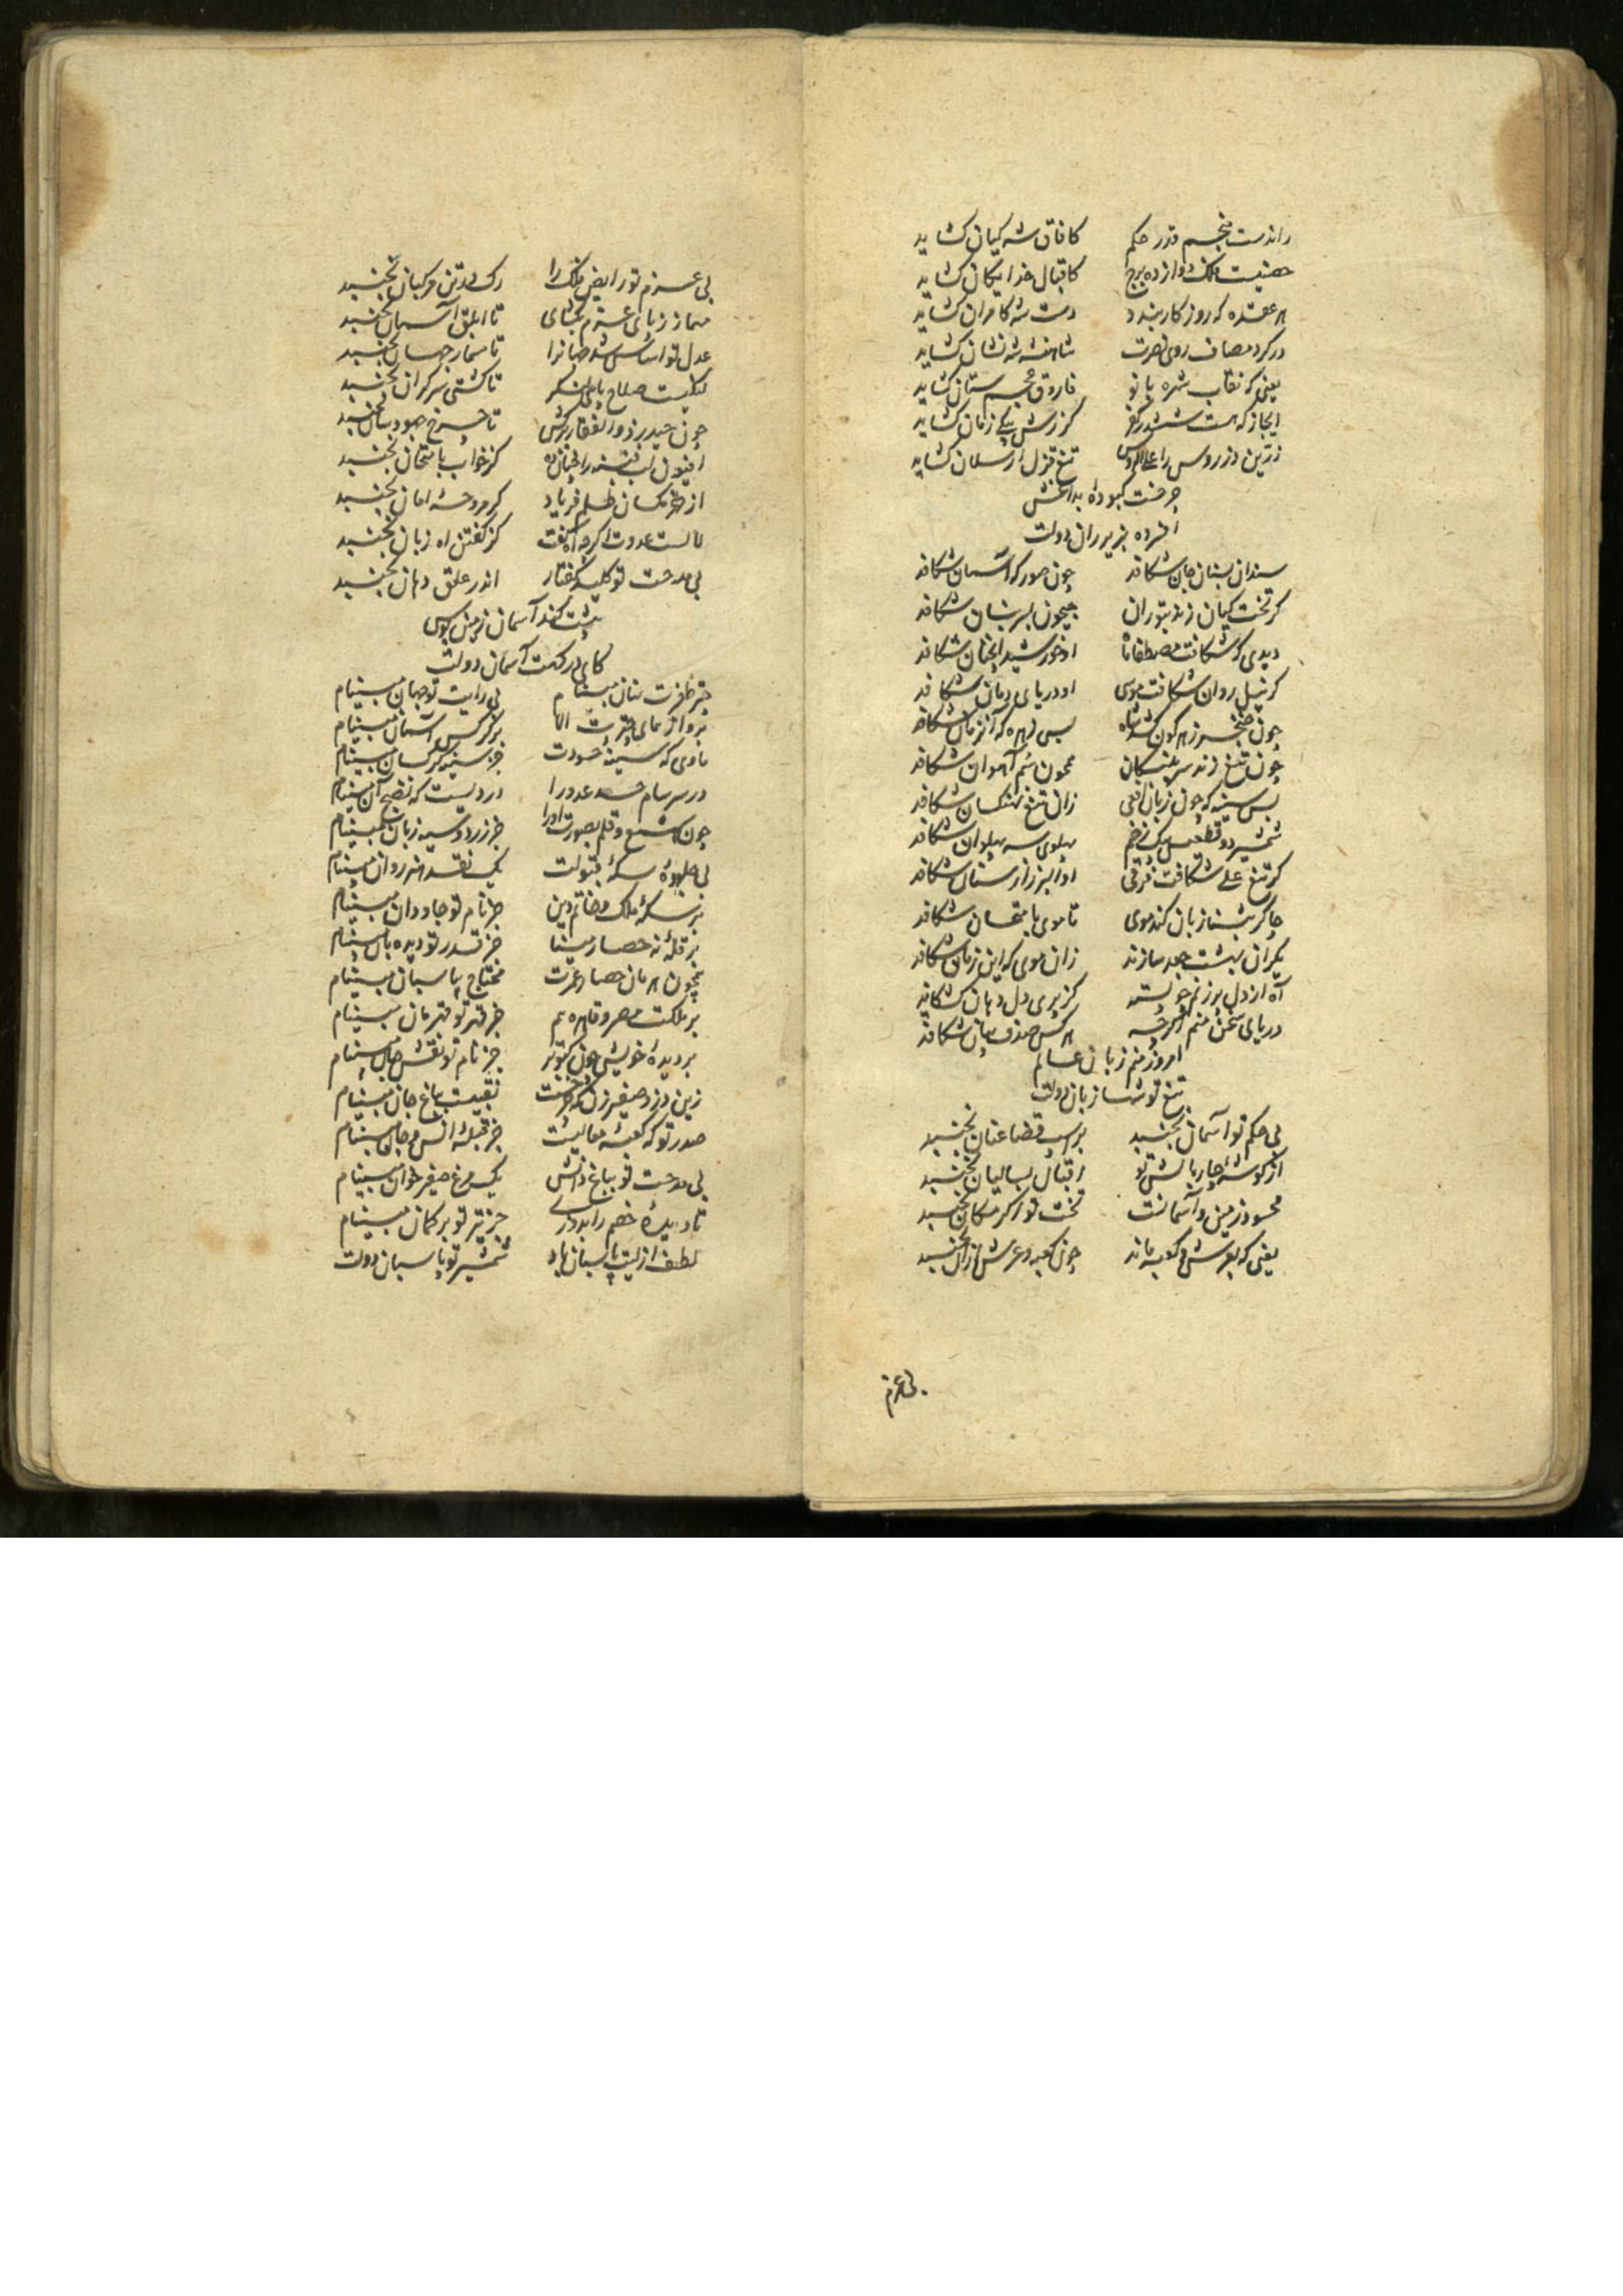 راندست منجم قدر حکم کافاق شه کیان کشاید
حصنیست فلک دوازده برج کاقبال خدایکان کشاید
هر عقده که روز کار بندد دست شه کامران کشاید
در کرد مصاف روی نصرت شاهنشه شه نشان کشاید
یعنی که نقاب شهره بانو فاروق عجم ستان کشاید
ایجاز که هست ششدر کفر کرزش بیکی زمان کشاید
زرین دز روس را تیغ قزل ارسلان کشاید
چرخست کبوده بداغش
افشرده بزیر ران دولت
سندان بسنان جان شکافد چون صور که آسمان شکافد
کر تخت کیان زند بتوران جیحون بسر بنان شکافد
دیدی که شکافت مصطفی ماه او خورشید آنچنان شکافد
کر نیل روان شکافت موسی او دریای دمان شکافد
چون خنجر زهر کون کشد شاه بس زهره که آن زمان شکافد
چون تیغ زند سر پلنکان همچون سم آهوان شکافد
بس سینه که چون زبان افعی زان تیغ شکافد
شمشیر دو قطعتش بیک زخم پهلوی سه پهلوان شکافد
کر تیغ علی شکافت فرقی او البرز از سنان شکافد
چاکر بثنا زبان کند موی تا موی بامتحان شکافد
پکران بهشت جعد سازند زان موی که این زمان شکافد
آه از دل پر زنم چو پسته کز پری دل دهان شکافد
دریای سخن منم اکرچه هر کس صدف بیان شکافد
امروز منم زبان عالم
تیغ تو شها زبان دولت
بی حکم تو آسمان نجنبد بر اسپ قضا عنان نجنبد
از کوشه چار بالش تو اقبال بسالیان نجنبد
محسود زمین و آسمانست تخت تو اکر مکان نجنبد
یعنی که بعرش و کعبه ماند چون کعبه و عرش ازان نجنبد
بی عزم
بی عزم تو رایض فلک را رک در تن مرکبان نجنبد
مهماز ز پای عزم بکشای تا ابلق آسمان نجنبد
عدل تو اساس شد جهانرا تا مسمار جهان نجنبد
لنکریست صلاح تا کشتی سر کران نجنبد
چون حیدر ذوالفقار برکش تا چرخ جهودسان نجنبد
افیون لب فتنه را چنان ده کز خواب بامتحان نجنبد
از مکسان ظلم فریاد کر مروحه امان نجنبد
لالست عدوت اکرچه آه کفت کز کفتن آه زبان نجنبد
بی مدحت تو کلید کفتار اندر غلق دهان نجنبد
پیشت کند آسمان زمین بوس
کای درکهت آسمان دولت
چتر ظفرت نهان مبینام بی رایت تو جهان مبینام
پرواز همای چترت الا بر کرکس آسمان مبینام
ماوی که سینه حسودت جز سینه کرکسان مبینام
در سرسام حسد عدو را دردیست که نضج آن مبینام
چون شمع و قلم بصورت او را جز زرد و سیه زبان مبینام
بی جلوه سکه قبولت یک نقد هنر روان مبینام
بر سکه ملک و خاتم دین جز نام تو جاودان مبینام
بر قله نه حصار مینا جز قدر تو دیده بان مبینام
همچون هرمان حصار عمرت محتاج پاسبان مبینام
بر ملکت مصر و قاهره هم جز قهر تو قهرمان مبینام
بر دیده خویش چون کبوتر جز نام تو نقش جان مبینام
زین دزد صفیرزن که چرخست نقبیت بباغ جان مبینام
صدر تو که کعبه معالیست جز قبله انس و جان مبینام
بی مدحت تو بباغ دانش یک مرغ صفیرخوان مبینام
تا دیده خصم را بدوزد جز تیر تو بر کمان مبینام
لطف ازلیت پاسبان باد شمشیر تو پاسبان دولت